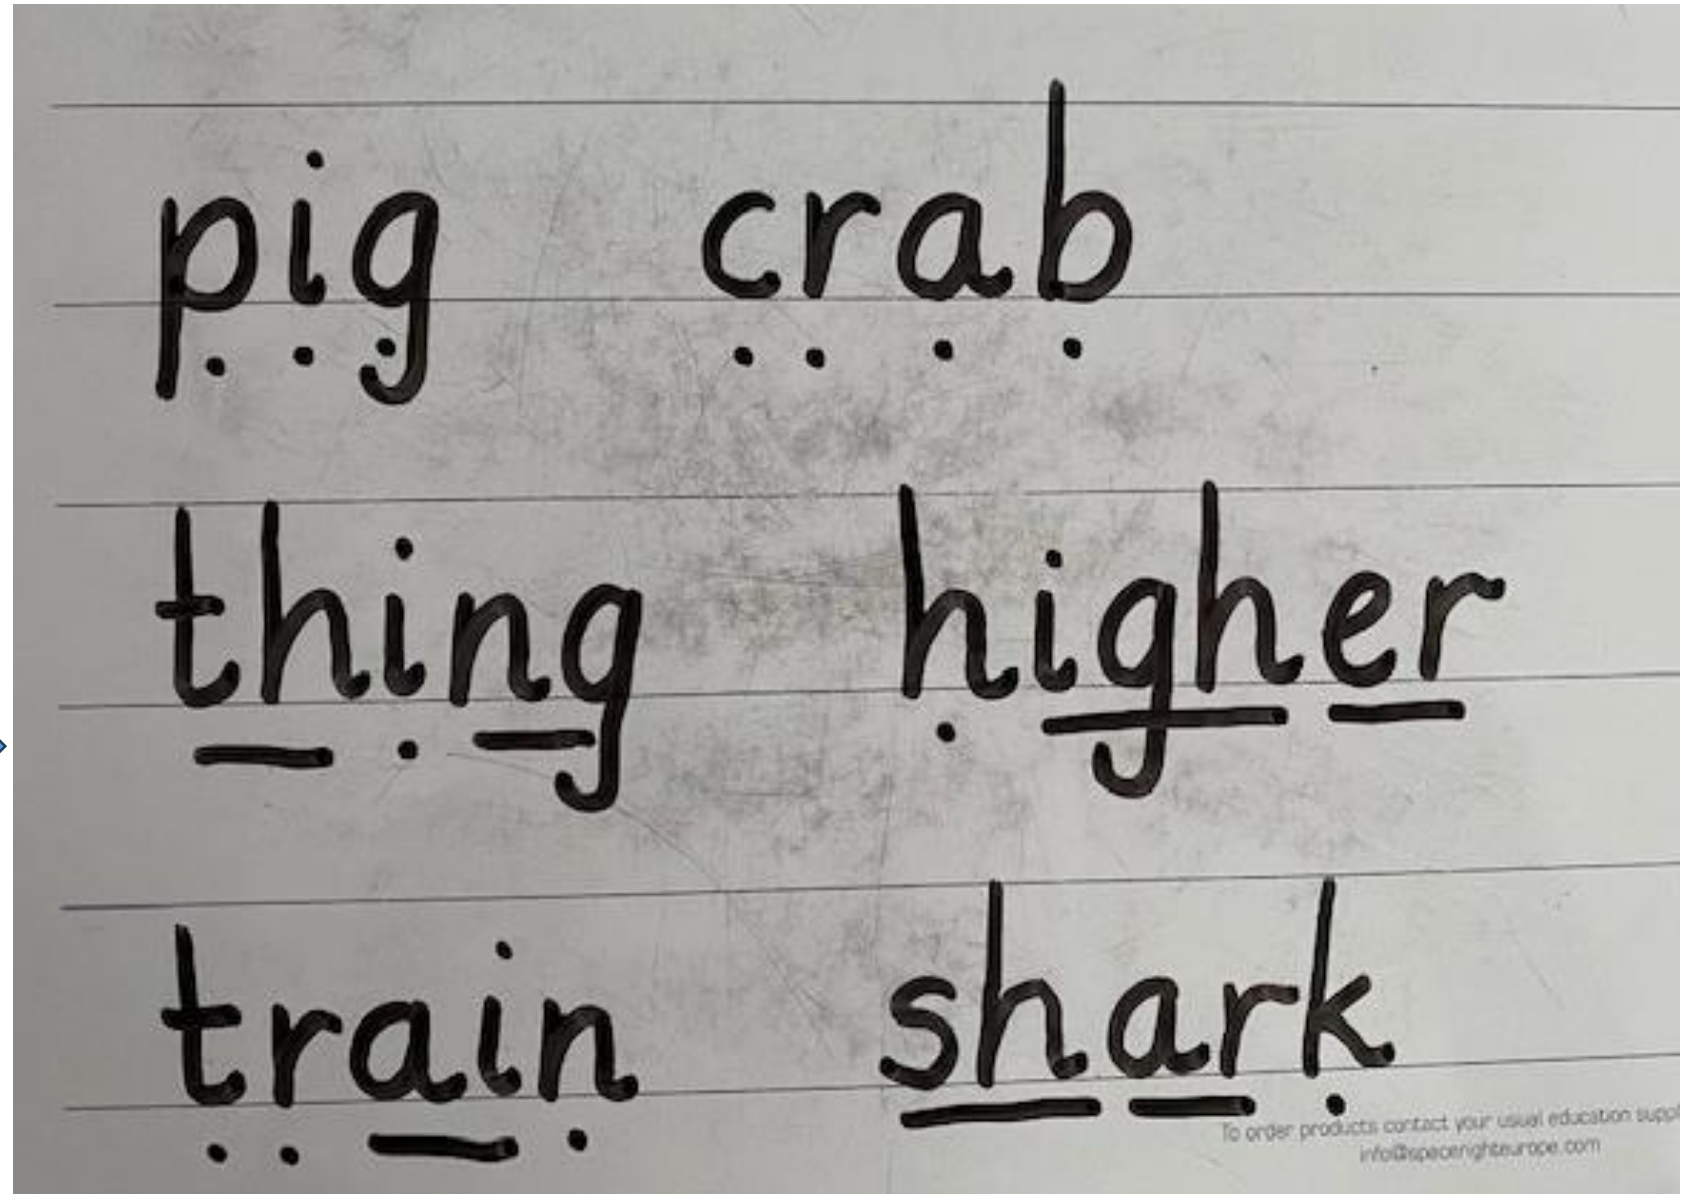 pig crab
thing higher
train shark
To order products contact your usual education
info@spacerighteurope.com